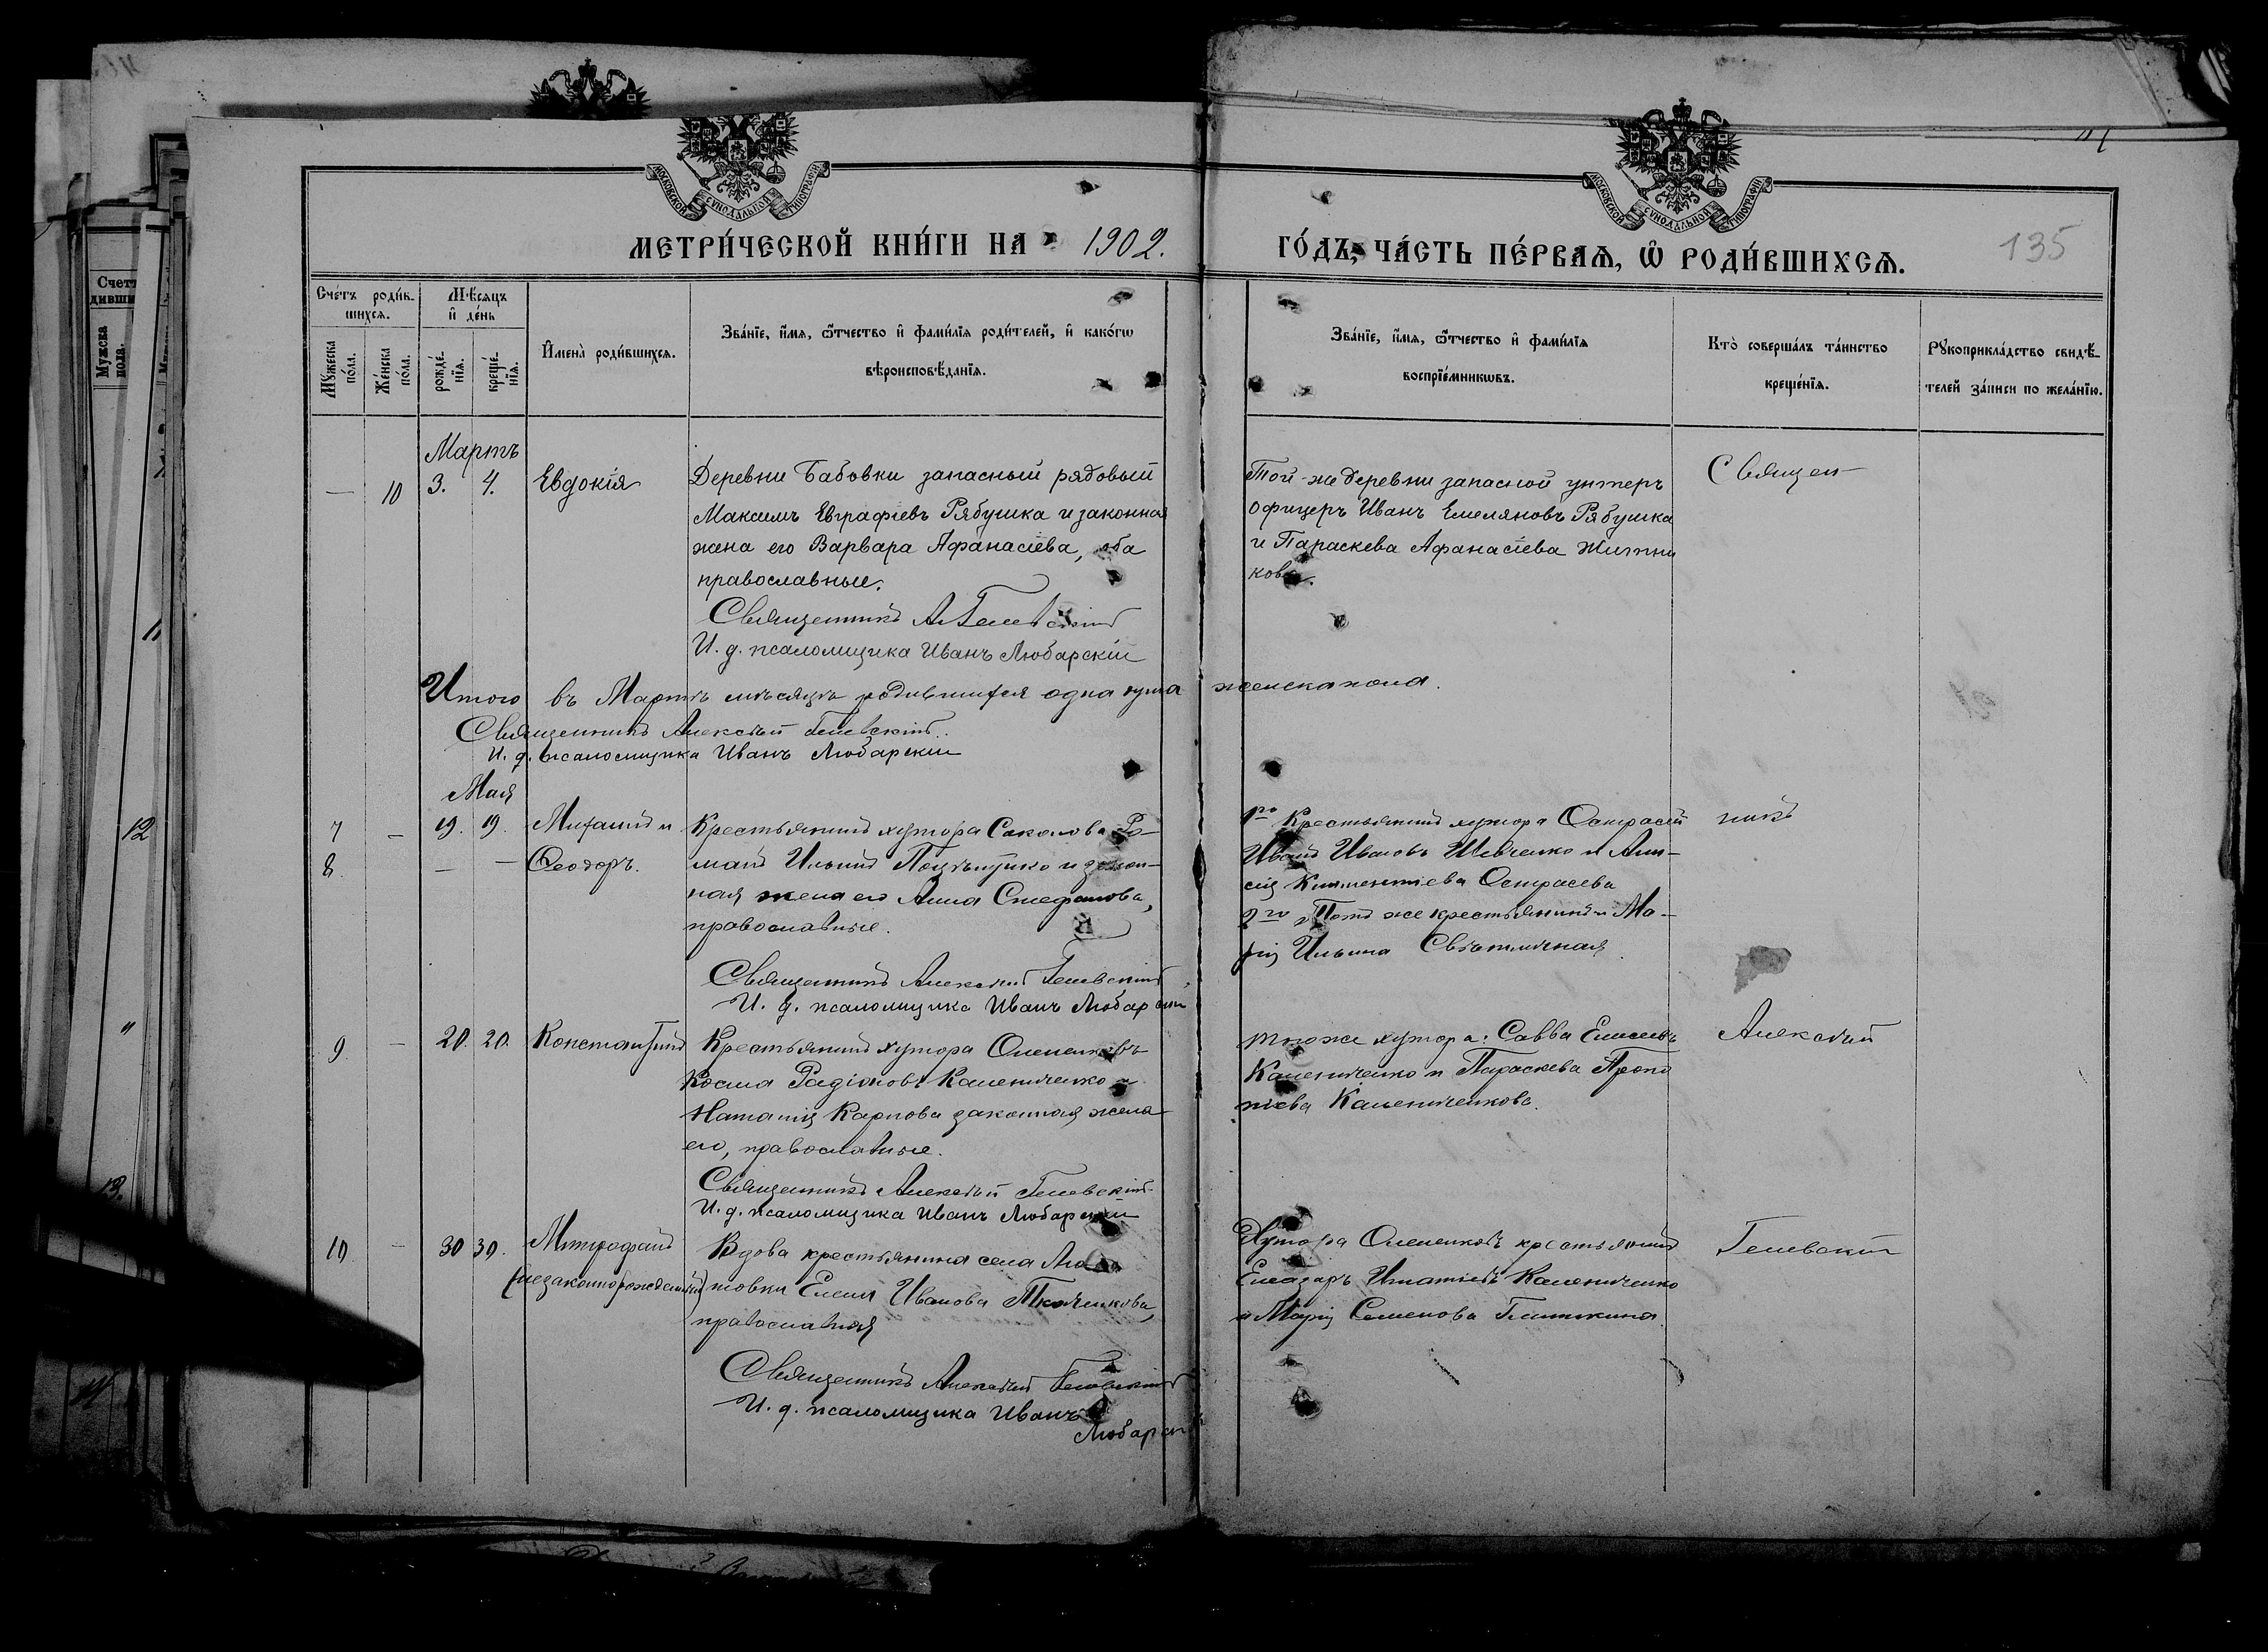 МЕТРИ́ЧЕСКОЙ КНИ́ГИ НА 1902. ГО́ДЪ, ЧА́СТЬ ПЕ́РВАѦ, Ѡ РОДИ́ВШИХСѦ.
135
МОСКОВСКОЙ СѴНОДАЛЬНОЙ ТИПОГРАФІИ
МОСКОВСКОЙ СѴНОДАЛЬНОЙ ТИПОГРАФІИ
Сче́тъ роди́вшихсѧ.
Мꙋ́жеска по́ла.
Же́нска по́ла.
Мѣ́сѧцъ и де́нь
рожде́нїѧ.
креще́нїѧ.
Имена̀ роди́вшихсѧ.
Зва́нїе, и́мѧ, ѻ҆́тчество и фами́лїѧ роди́телей, и како́гѡ
вѣроисповѣ́данїѧ.
Зва́нїе, и́мѧ, ѻ҆́тчество и фами́лїѧ
воспрїе́мникѡвъ.
Кто̀ соверша́лъ та́инство
креще́нїѧ.
Рꙋкоприкла́дство свидѣ́телей за́писи по жела́нїю.
Мартъ
— 10 3. 4. Евдокія
Деревни Бабовки запасный рядовый
Максимъ Евграфіевъ Рябушка и законная
жена его Варвара Афанасіева, оба
православные.
Священникъ А. Гелевскій
И. д. псаломщика Иванъ Любарскій
Той-же деревни запасной унтеръ
офицеръ Иванъ Емеляновъ Рябушка
и Параскева Афанасіева Житни
кова.
Священ-
Итого въ Мартѣ мѣсяцѣ родившихся одна душа женска пола.
Священникъ Алексѣй Гелевскій.
И. д. псаломщика Иванъ Любарскій
Мая
7 — 19. 19. Михаилъ и
8. — — Ѳеодоръ.
Крестьянинъ хутора Соколова Ро-
манъ Ильинъ и закон-
ная жена его Анна Стефанова,
православные.
Священникъ Алексѣй Гелевскій
И. д. псаломщика Иванъ Любарскій
1го Крестьянинъ хутора
Иванъ Ивановъ Шевченко и
2го Тотъ же крестьянинъ и Ма-
рія Ильина Свѣтличная.
никъ
9 — 20. 20. Константинъ
Крестьянинъ хутора Олененковъ
Косма Радіоновъ Калениченко и
Наталія Карпова законная жена
его, православные.
Священникъ Алексѣй Гелевскій
И. д. псаломщика Иванъ Любарскій
того же хутора: Савва Елисеевъ
Калениченко и Параскева
Калениченкова.
Алексѣй
10 — 30 30. Митрофанъ
(незаконнорожденный)
Вдова крестьянина села
Елена Иванова Ткаченкова,
православная
Священникъ Алексѣй Гелевскій
И. д. псаломщика Иванъ
Любарскій
Хутора Олененковъ крестьянинъ
Елеазаръ Игнатіевъ Калениченко
и Марія Семенова
Гелевскій
Счетъ
дивши
Мужска
пола.
11
12
"
13.
14